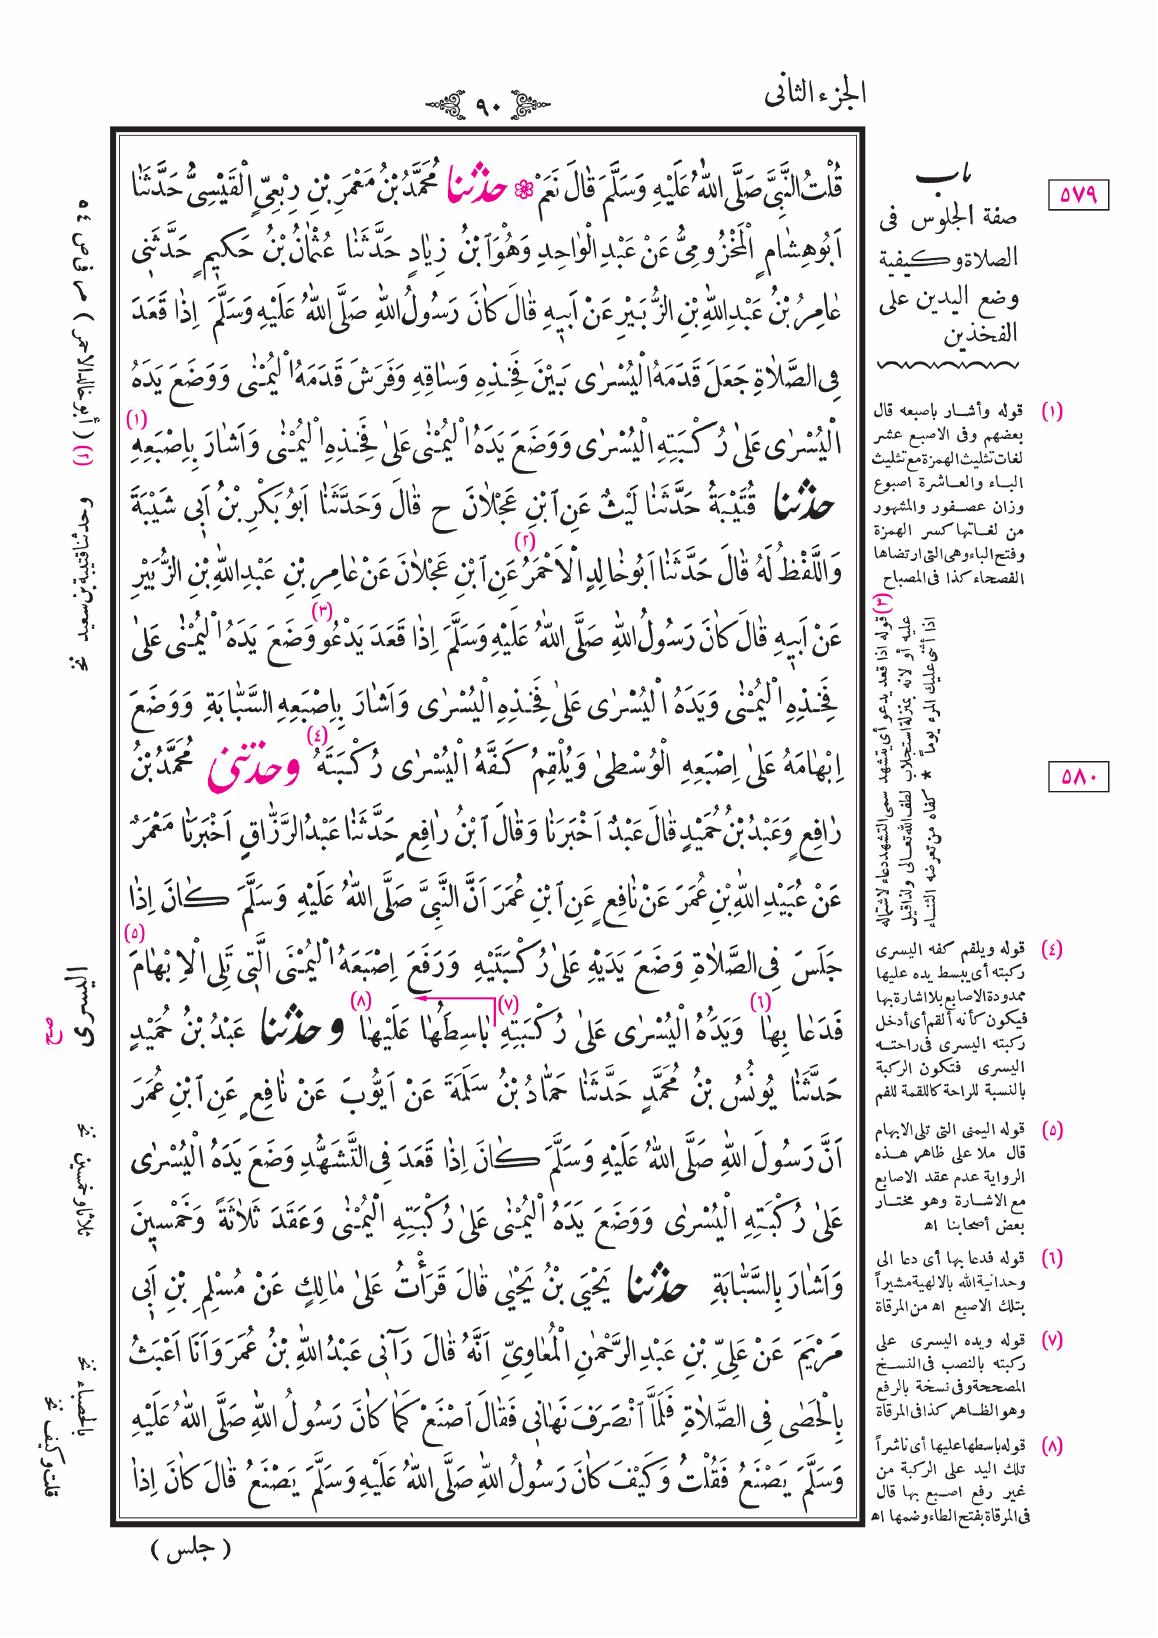 الجزء الثانى
٩٠
قُلْتُ النَّبِىَّ صَلَّى اللّٰهُ عَلَيْهِ وَسَلَّمَ قَالَ نَعَمْ ❁ حَدَّثَنَا مُحَمَّدُ بْنُ مَعْمَرِ بْنِ رِبْعِىٍّ الْقَيْسِىُّ حَدَّثَنَا
اَبُو هِشَامٍ الْمَخْزُومِىُّ عَنْ عَبْدِ الْوَاحِدِ وَهُوَ ابْنُ زِيَادٍ حَدَّثَنَا عُثْمَانُ بْنُ حَكِيمٍ حَدَّثَنِى
عَامِرُ بْنُ عَبْدِ اللّٰهِ بْنِ الزُّبَيْرِ عَنْ اَبِيهِ قَالَ كَانَ رَسُولُ اللّٰهِ صَلَّى اللّٰهُ عَلَيْهِ وَسَلَّمَ اِذَا قَعَدَ
فِى الصَّلَاةِ جَعَلَ قَدَمَهُ الْيُسْرٰى بَيْنَ فَخِذِهِ وَسَاقِهِ وَفَرَشَ قَدَمَهُ الْيُمْنٰى وَوَضَعَ يَدَهُ
الْيُسْرٰى عَلٰى رُكْبَتِهِ الْيُسْرٰى وَوَضَعَ يَدَهُ الْيُمْنٰى عَلٰى فَخِذِهِ الْيُمْنٰى وَاَشَارَ بِاِصْبَعِهِ (١)
حَدَّثَنَا قُتَيْبَةُ حَدَّثَنَا لَيْثٌ عَنِ ابْنِ عَجْلَانَ ح قَالَ وَحَدَّثَنَا اَبُو بَكْرِ بْنُ اَبِى شَيْبَةَ
وَاللَّفْظُ لَهُ قَالَ حَدَّثَنَا اَبُو خَالِدٍ الْاَحْمَرُ (٢) عَنِ ابْنِ عَجْلَانَ عَنْ عَامِرِ بْنِ عَبْدِ اللّٰهِ بْنِ الزُّبَيْرِ
عَنْ اَبِيهِ قَالَ كَانَ رَسُولُ اللّٰهِ صَلَّى اللّٰهُ عَلَيْهِ وَسَلَّمَ اِذَا قَعَدَ يَدْعُو (٣) وَضَعَ يَدَهُ الْيُمْنٰى عَلٰى
فَخِذِهِ الْيُمْنٰى وَيَدَهُ الْيُسْرٰى عَلٰى فَخِذِهِ الْيُسْرٰى وَاَشَارَ بِاِصْبَعِهِ السَّبَّابَةِ وَوَضَعَ
اِبْهَامَهُ عَلٰى اِصْبَعِهِ الْوُسْطٰى وَيُلْقِمُ كَفَّهُ الْيُسْرٰى رُكْبَتَهُ (٤) وَحَدَّثَنِى مُحَمَّدُ بْنُ
رَافِعٍ وَعَبْدُ بْنُ حُمَيْدٍ قَالَ عَبْدٌ اَخْبَرَنَا وَقَالَ ابْنُ رَافِعٍ حَدَّثَنَا عَبْدُ الرَّزَّاقِ اَخْبَرَنَا مَعْمَرٌ
عَنْ عُبَيْدِ اللّٰهِ بْنِ عُمَرَ عَنْ نَافِعٍ عَنِ ابْنِ عُمَرَ اَنَّ النَّبِىَّ صَلَّى اللّٰهُ عَلَيْهِ وَسَلَّمَ كَانَ اِذَا
جَلَسَ فِى الصَّلَاةِ وَضَعَ يَدَيْهِ عَلٰى رُكْبَتَيْهِ وَرَفَعَ اِصْبَعَهُ الْيُمْنَى الَّتِى تَلِى الْاِبْهَامَ (٥)
فَدَعَا بِهَا (٦) وَيَدَهُ الْيُسْرٰى عَلٰى رُكْبَتِهِ (٧) بَاسِطُهَا عَلَيْهَا (٨) وَحَدَّثَنَا عَبْدُ بْنُ حُمَيْدٍ
حَدَّثَنَا يُونُسُ بْنُ مُحَمَّدٍ حَدَّثَنَا حَمَّادُ بْنُ سَلَمَةَ عَنْ اَيُّوبَ عَنْ نَافِعٍ عَنِ ابْنِ عُمَرَ
اَنَّ رَسُولَ اللّٰهِ صَلَّى اللّٰهُ عَلَيْهِ وَسَلَّمَ كَانَ اِذَا قَعَدَ فِى التَّشَهُّدِ وَضَعَ يَدَهُ الْيُسْرٰى
عَلٰى رُكْبَتِهِ الْيُسْرٰى وَوَضَعَ يَدَهُ الْيُمْنٰى عَلٰى رُكْبَتِهِ الْيُمْنٰى وَعَقَدَ ثَلَاثَةً وَخَمْسِينَ
وَاَشَارَ بِالسَّبَّابَةِ حَدَّثَنَا يَحْيَى بْنُ يَحْيٰى قَالَ قَرَأْتُ عَلٰى مَالِكٍ عَنْ مُسْلِمِ بْنِ اَبِى
مَرْيَمَ عَنْ عَلِىِّ بْنِ عَبْدِ الرَّحْمٰنِ الْمُعَاوِىِّ اَنَّهُ قَالَ رَآنِى عَبْدُ اللّٰهِ بْنُ عُمَرَ وَاَنَا اَعْبَثُ
بِالْحَصٰى فِى الصَّلَاةِ فَلَمَّا انْصَرَفَ نَهَانِى فَقَالَ اصْنَعْ كَمَا كَانَ رَسُولُ اللّٰهِ صَلَّى اللّٰهُ عَلَيْهِ
وَسَلَّمَ يَصْنَعُ فَقُلْتُ وَكَيْفَ كَانَ رَسُولُ اللّٰهِ صَلَّى اللّٰهُ عَلَيْهِ وَسَلَّمَ يَصْنَعُ قَالَ كَانَ اِذَا
( جلس )
٥٧٩
باب
صفة الجلوس فى
الصلاة وكيفية
وضع اليدين على
الفخذين
(١) قوله وأشار باصبعه قال
بعضهم وفى الاصبع عشر
لغات تثليث الهمزة مع تثليث
الباء والعاشرة اصبوع
وزان عصفور والمشهور
من لغاتها كسر الهمزة
وفتح الباء وهى التى ارتضاها
الفصحاء كذا فى المصباح
(٣) قوله اذا قعد يدعو أى يتشهد سمى التشهد دعاء لاشتماله
عليه أو لانه بمنزلة استجلاب لطف الله تعالى ولذا قيل
اذا أثنى عليك المرء يوماً * كفاه من تعرضه الثناء
٥٨٠
(٤) قوله ويلقم كفه اليسرى
ركبته أى يبسط يده عليها
ممدودة الاصابع بلا اشارة بها
فيكون كأنه ألقم أى أدخل
ركبته اليسرى فى راحته
اليسرى فتكون الركبة
بالنسبة للراحة كاللقمة للفم
(٥) قوله اليمنى التى تلى الابهام
قال ملا على ظاهر هذه
الرواية عدم عقد الاصابع
مع الاشارة وهو مختار
بعض أصحابنا اه
(٦) قوله فدعا بها أى دعا الى
وحدانية الله بالالهية مشيراً
بتلك الاصبع اه من المرقاة
(٧) قوله ويده اليسرى على
ركبته بالنصب فى النسخ
المصححة وفى نسخة بالرفع
وهو الظاهر كذا فى المرقاة
(٨) قوله باسطها عليها أى ناشراً
تلك اليد على الركبة من
غير رفع اصبع بها قال
فى المرقاة بفتح الطاء وضمها اه
(٢) ( أبو خالد الاحمر ) مر فى ص ٥٤
وحدثنا قتيبة بن سعيد نخ
اليسرى صح
ثلاثا وخمسين نخ
بالحصباء نخ
قلت وكيف نخ